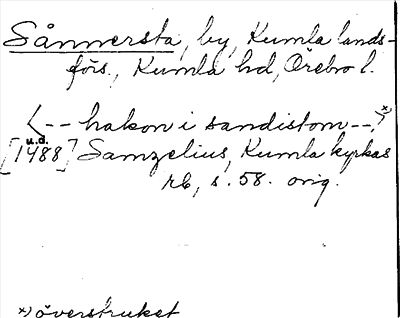 Sånnersta, by, Kumla lands-
förs., Kumla hd, Örebro l.
<-- hakon i sandistom --> x)
u.d.
[1488] Samzelius, Kumla kyrkas
rb, s. 58. orig.
x) överstruket